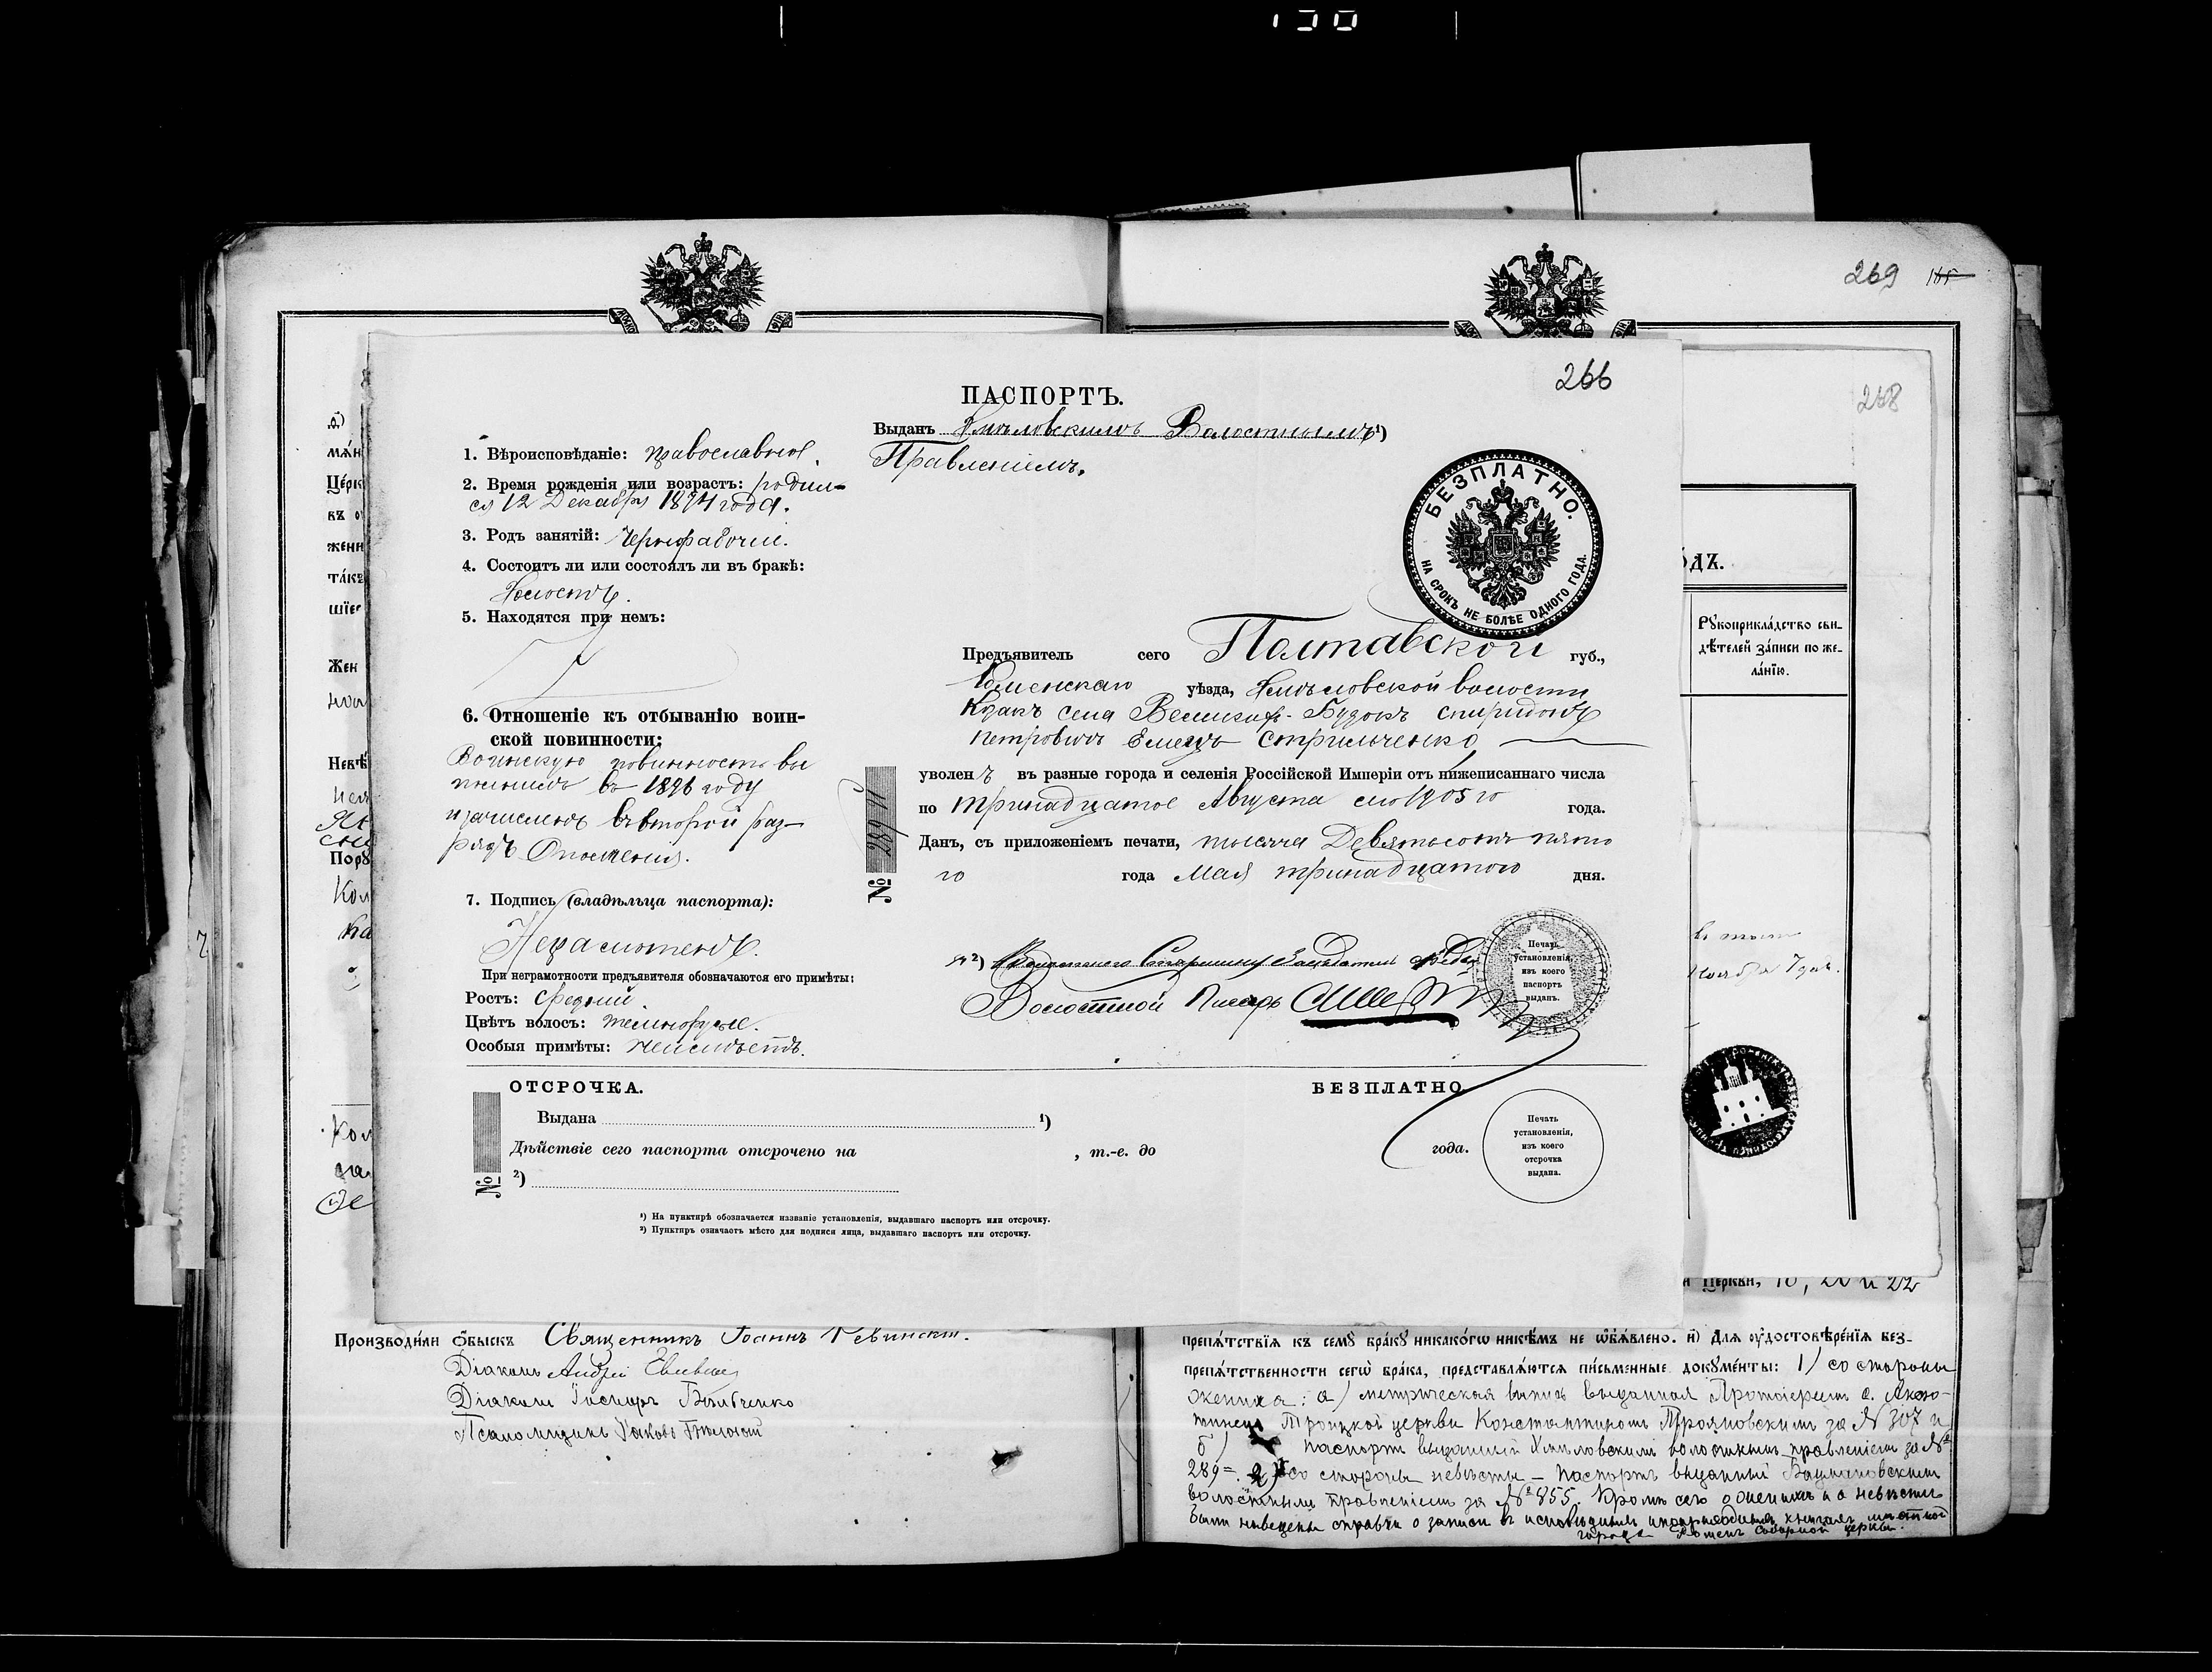 269
266
268
ПАСПОРТЪ.
Выданъ Хмѣловскимъ Волостнымъ ¹)
Правленіемъ.
1. Вѣроисповѣданіе: православное.
2. Время рожденія или возрастъ: родил-
ся 12 Декабря 1874 года.
3. Родъ занятій: Чернорабочій.
4. Состоитъ ли или состоялъ ли въ бракѣ:
Холостъ.
5. Находятся при немъ:
6. Отношеніе къ отбыванію воин-
ской повинности:
Воинскую повинность вы
полнилъ въ 1896 году
и зачисленъ во второй раз-
рядъ Ополченія.
7. Подпись (владѣльца паспорта):
Неграмотенъ.
При неграмотности предъявителя обозначаются его примѣты:
Ростъ: средній.
Цвѣтъ волосъ: темнорусые.
Особыя примѣты: неимѣетъ.
БЕЗПЛАТНО.
НА СРОКЪ НЕ БОЛѢЕ ОДНОГО ГОДА.
Предъявитель сего Полтавской губ.,
Роменскаго уѣзда, Хмѣловской волости
Козакъ села Великихъ-Будокъ Спиридонъ
Петровичъ Емецъ Стрильченко
уволенъ въ разные города и селенія Россійской Имперіи отъ нижеписаннаго числа
по тринадцатое Августа сего 1905 го года.
Данъ, съ приложеніемъ печати, тысяча Девятьсотъ пято
го года Мая тринадцатого дня.
№ 289
²) Волостного Старшину Засѣдатель
Волостной Писарь
Печать
установленія,
изъ коего
паспортъ
выданъ.
ОТСРОЧКА.
БЕЗПЛАТНО
Выдана ¹)
Дѣйствіе сего паспорта отсрочено на , т.-е. до года.
№
²)
Печать
установленія,
изъ коего
отсрочка
выдана.
¹) На пунктирѣ обозначается названіе установленія, выдавшаго паспортъ или отсрочку.
²) Пунктиръ означаетъ мѣсто для подписи лица, выдавшаго паспортъ или отсрочку.
Рꙋкоприкла́дство сви-
дѣ́телей за́писи по же-
ла́нїю.
Ноября 7 дня.
Производи́ли ѻ́быскъ Священникъ Іоаннъ Левинскій.
Діаконъ Андрей
Діаконъ
Псаломщикъ Яковъ
Це́ркви, 18, 20 и 22
препѧ́тствїѧ къ семꙋ̀ бра́кꙋ никако́гѡ никѣ́мъ не ѡ҆б̾ѧ́влено. и҃) Длѧ ᲂу҆достовѣре́нїѧ без-
препѧ́тственности сегѡ̀ бра́ка, представлѧ́ютсѧ пи́сьменные докꙋме́нты: 1) со стороны
жениха: а) метрическая выпись выданная Протоіереемъ с. Аксю-
тинецъ Троицкой церкви Константиномъ Трояновскимъ за № 307 и
б) паспортъ выданный Хмѣловскимъ волостнымъ правленіемъ за №
289. 2) со стороны невѣсты — паспортъ выданный Бацмановскимъ
волостнымъ правленіемъ за № 855. Кромѣ сего о женихѣ и о невѣстѣ
были наведены справки о записи въ исповѣдныя и приходныя книгахъ мѣстной
города Роменъ Соборной церкви.